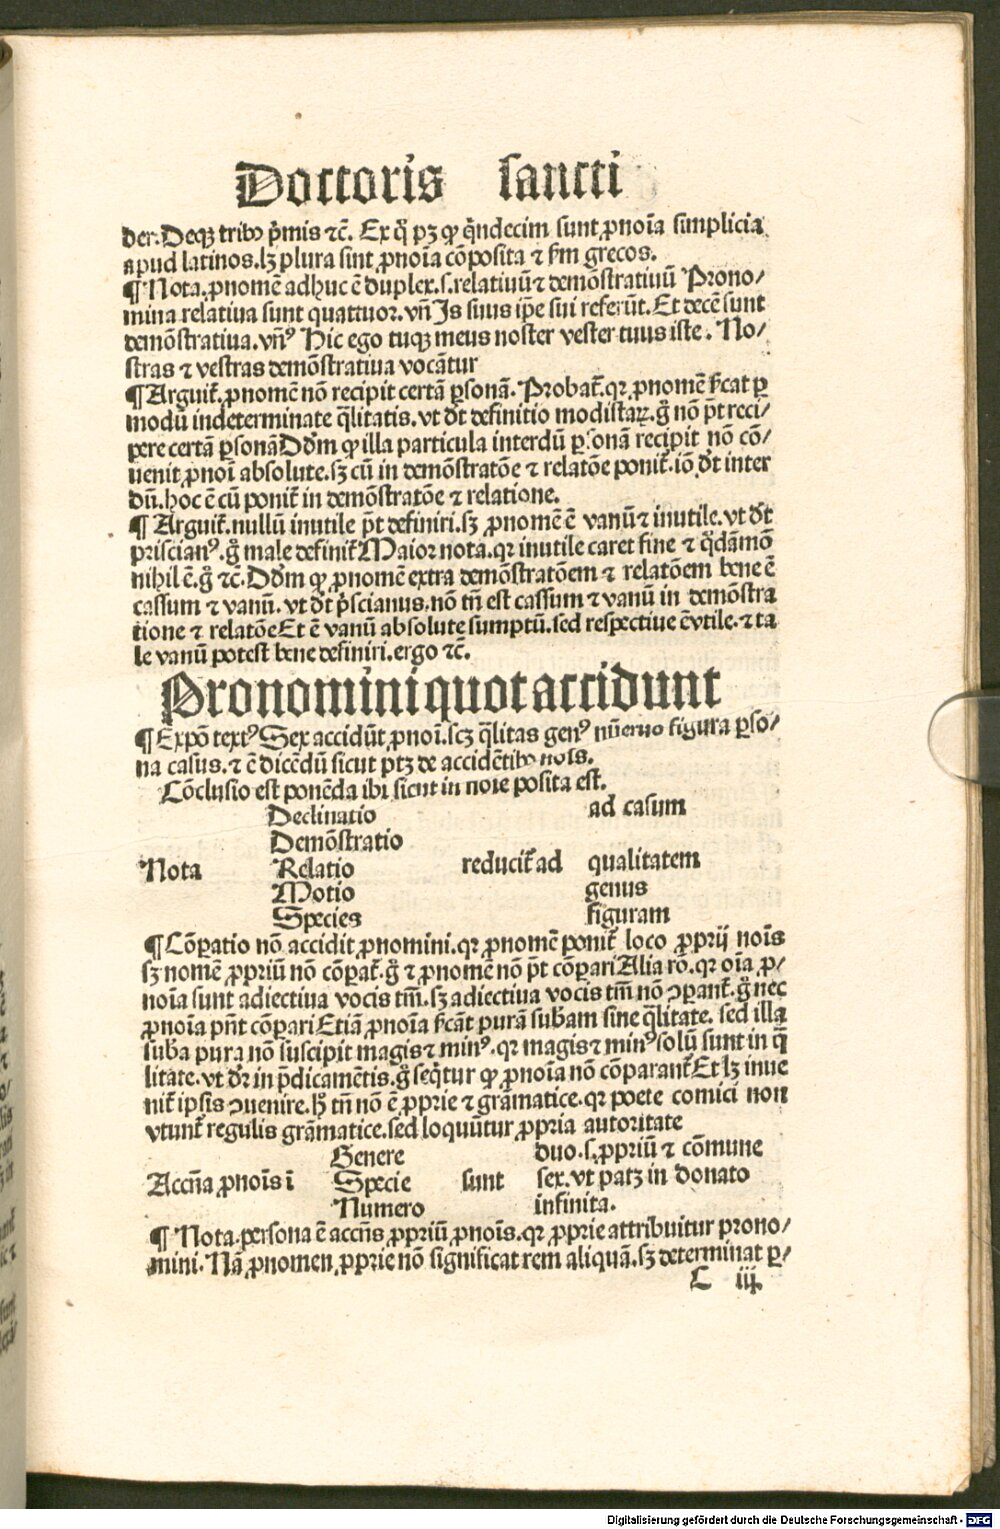 Doctoris sancti
der. Deqꝫ tribꝰ p̄mis ⁊c̄. Ex q̄ pꝫ ꝙ q̄ndecim sunt ꝓnoīa simplicia
apud latinos. lꝫ plura sint ꝓnoīa cōposita ⁊ ẜm grecos.
¶ Nota. ꝓnomē adhuc ē duplex. s. relatiuū ⁊ demōstratiuū Prono/
mina relatiua sunt quattuor. vn̄ Is suus ip̄e sui referūt. Et decē sunt
demōstratiua. vn̄ꝰ Hic ego tuqꝫ meus noster vester tuus iste. No/
stras ⁊ vestras demōstratiua vocātur
¶ Arguit̄. ꝓnomē nō recipit certā ꝑsonā. Probat̄. qꝛ ꝓnomē ẜcat ꝑ
modū indeterminate q̄litatis. vt dt̄ definitio modistaꝝ. g̊ nō pt̄ reci/
pere certā ꝑsonā Dd̄m ꝙ illa particula interdū ꝑsonā recipit nō cō/
uenit ꝓnoī absolute. sꝫ cū in demōstratōe ⁊ relatōe ponit̄. iō dt̄ inter
dū. hoc ē cū ponit̄ in demōstratōe ⁊ relatione.
¶ Arguit̄. nullū inutile pt̄ definiri. sꝫ ꝓnomē ē vanū ⁊ inutile. vt dt̄
priscianꝰ. g̊ male definit̄ Maior nota. qꝛ inutile caret fine ⁊ q̊dāmō
nihil ē. g̊ ⁊c̄. Dd̄m ꝙ ꝓnomē extra demōstratōem ⁊ relatōem bene ē
cassum ⁊ vanū. vt dt̄ p̄scianus. nō tn̄ est cassum ⁊ vanū in demōstra
tione ⁊ relatōe Et ē vanū absolute sumptū. sed respectiue ē vtile. ⁊ ta
le vanū potest bene definiri. ergo ⁊c̄.
Pronomini quot accidunt
¶ Expō textꝰ Sex accidūt ꝓnoī. scꝫ q̄litas genꝰ nūerus figura ꝑso/
na casus. ⁊ ē dicēdū sicut ptꝫ de accidētibꝰ nois.
Cōclusio est ponēda ibi sicut in noīe posita est.
Declinatio ad casum
Demōstratio
Nota Relatio reducit̄ ad qualitatem
Motio genus
Species figuram
¶ Cōꝑatio nō accidit ꝓnomini. qꝛ ꝓnomē ponit̄ loco ꝓprij noīs
sꝫ nomē ꝓpriū nō cōꝑat̄. g̊ ⁊ ꝓnomē nō pt̄ cōꝑari Alia rō. qꝛ oīa ꝓ/
noīa sunt adiectiua vocis tm̄. sꝫ adiectiua vocis tm̄ nō ꝯꝑant̄. g̊ nec
ꝓnoīa pn̄t cōꝑari Etiā ꝓnoīa ẜcāt purā sub̄am sine q̄litate. sed illa
sub̄a pura nō suscipit magis ⁊ minꝰ. qꝛ magis ⁊ minꝰ solū sunt in q̄
litate. vt dr̄ in p̄dicamētis. g̊ seq̄tur ꝙ ꝓnoīa nō cōparant̄ Et lꝫ inue
nit̄ ipsis ꝯuenire. h̊ tn̄ nō ē ꝓprie ⁊ grāmatice. qꝛ poete comici non
vtunt̄ regulis grāmatice. sed loquūtur ꝓpria autoritate
Genere duo. s. ꝓpriū ⁊ cōmune
Accn̄a ꝓnoīs ī Specie sunt sex. vt patꝫ in donato
Numero infinita.
¶ Nota. persona ē accn̄s ꝓpriū ꝓnoīs. qꝛ ꝓprie attribuitur prono/
mini. Nā ꝓnomen ꝓprie nō significat rem aliquā. sꝫ determinat ꝑ/
C iij
Digitalisierung gefördert durch die Deutsche Forschungsgemeinschaft - DFG